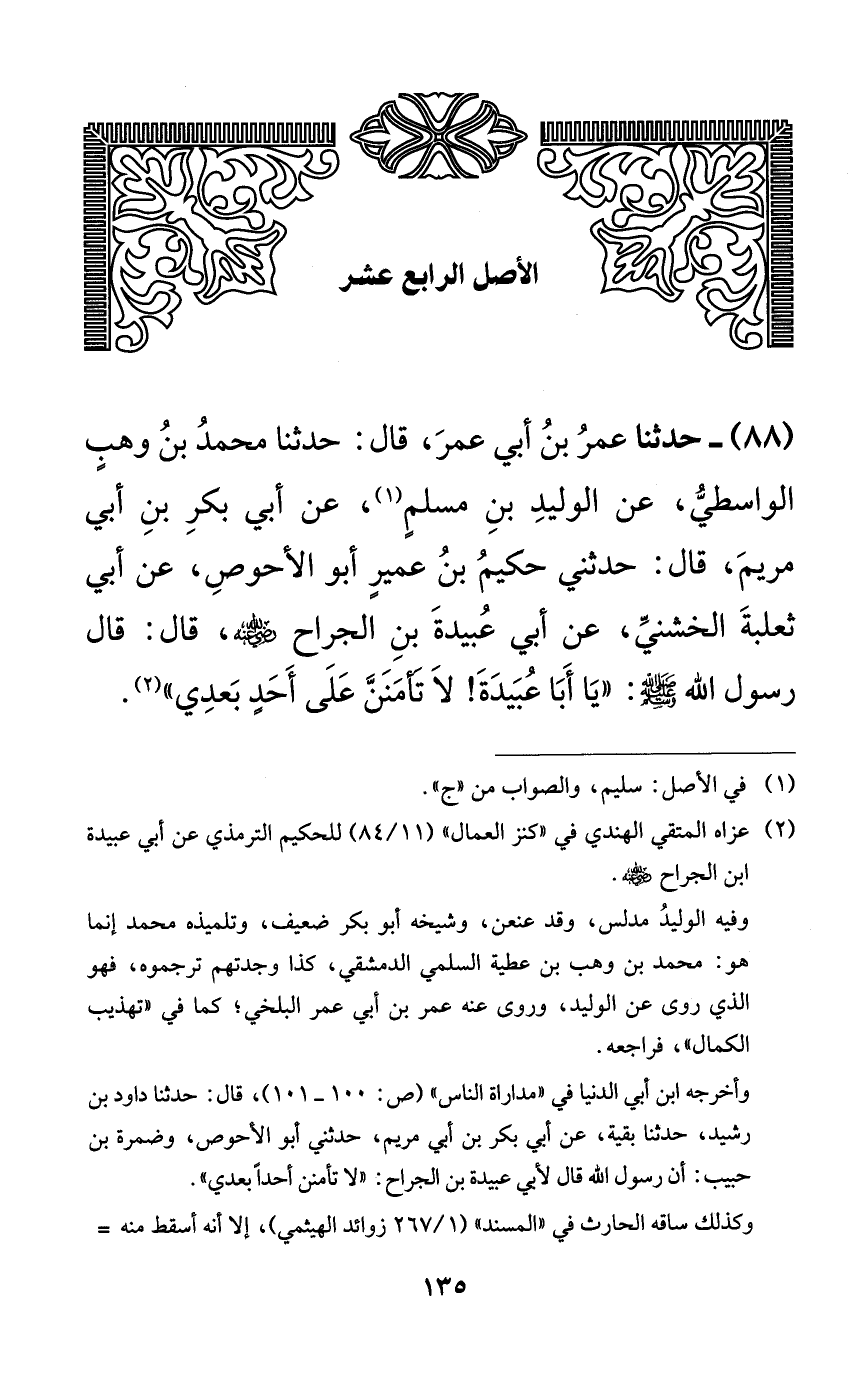 الأصل الرابع عشر
(٨٨) ـ حدثنا عمرُ بنُ أبي عمرَ، قال: حدثنا محمدُ بنُ وهبٍ
الواسطيُّ، عن الوليدِ بنِ مسلمٍ(١)، عن أبي بكرِ بنِ أبي
مريمَ، قال: حدثني حكيمُ بنُ عميرٍ أبو الأحوصِ، عن أبي
ثعلبةَ الخشنيِّ، عن أبي عُبيدةَ بنِ الجراح رضي الله عنه، قال: قال
رسول الله ﷺ: «يَا أَبَا عُبَيَدَةَ! لاَ تَأمَنَنَّ عَلَى أَحَدٍ بَعدِي»(٢).
(١) في الأصل: سليم، والصواب من «ج».
(٢) عزاه المتقي الهندي في «كنز العمال» (١١/ ٨٤) للحكيم الترمذي عن أبي عبيدة
ابن الجراح رضي الله عنه.
وفيه الوليدُ مدلس، وقد عنعن، وشيخه أبو بكر ضعيف، وتلميذه محمد إنما
هو: محمد بن وهب بن عطية السلمي الدمشقي، كذا وجدتهم ترجموه، فهو
الذي روى عن الوليد، وروى عنه عمر بن أبي عمر البلخي؛ كما في «تهذيب
الكمال»، فراجعه.
وأخرجه ابن أبي الدنيا في «مداراة الناس» (ص: ١٠٠ ـ ١٠١)، قال: حدثنا داود بن
رشيد، حدثنا بقية، عن أبي بكر بن أبي مريم، حدثني أبو الأحوص، وضمرة بن
حبيب: أن رسول الله قال لأبي عبيدة بن الجراح: «لا تأمنن أحداً بعدي».
وكذلك ساقه الحارث في «المسند» (١/ ٢٦٧ زوائد الهيثمي)، إلا أنه أسقط منه =
١٣٥